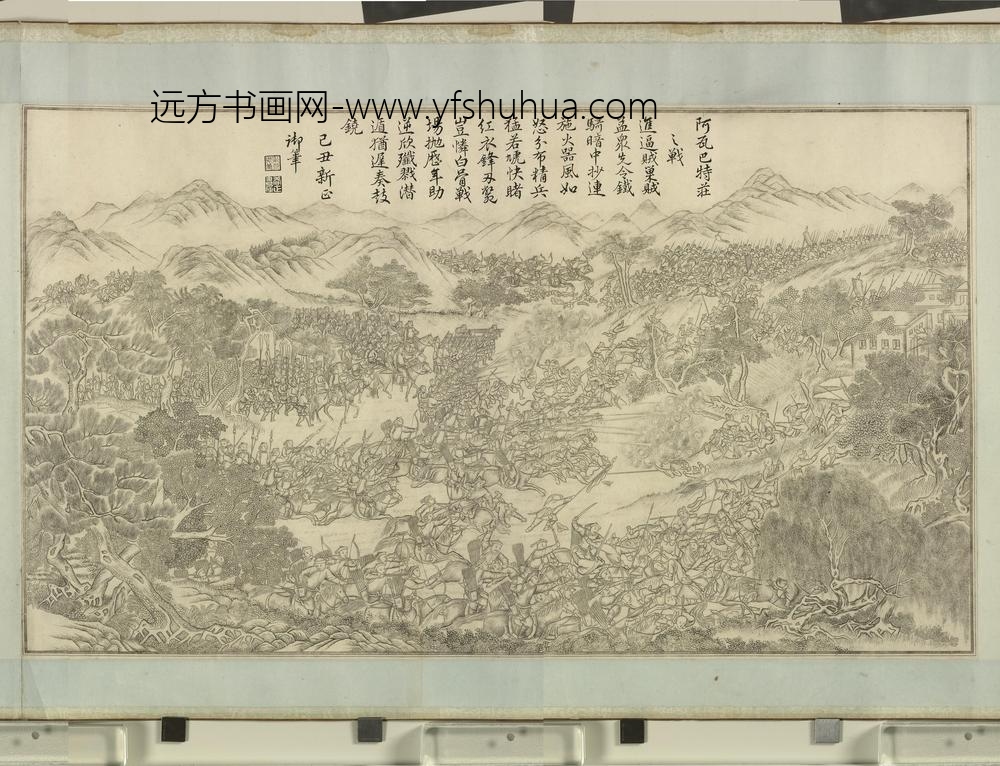 远方书画网-www.yfshuhua.com
阿瓦巴特莊
之戰
進逼賊巢賊
益衆先令鐵
騎暗中抄連
施火器風如
怒分布精兵
猛若虓快睹
紅衣鋒刃斃
豈憐白骨戰
場拋歷年助
逆欣殲戮潜
遁猶遲奏鼓
鐃
己丑新正
御筆